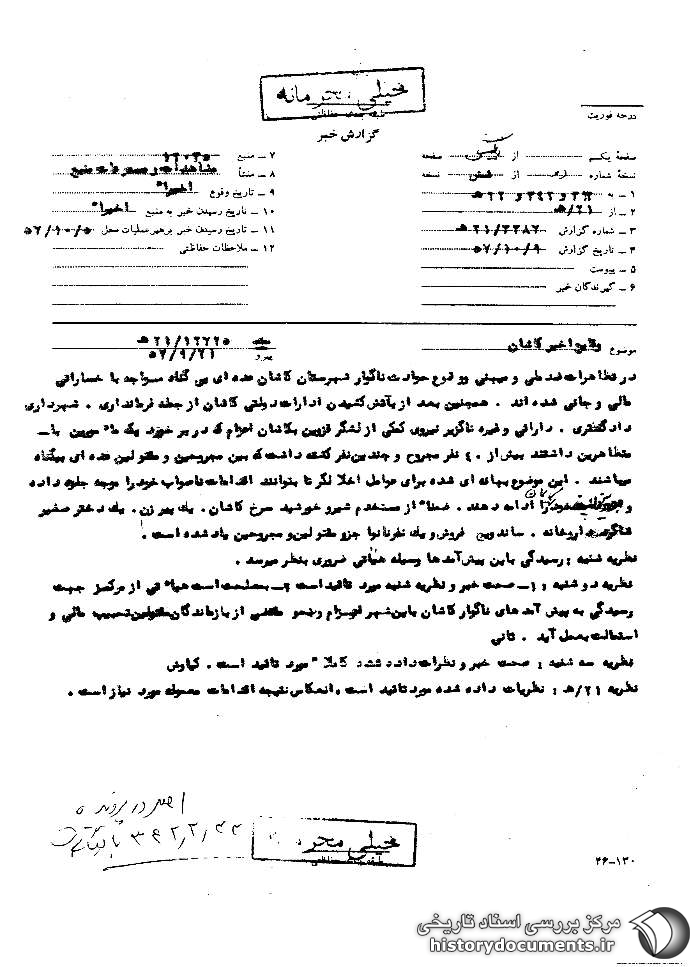 خیلی محرمانه
طبقه بندی حفاظتی
گزارش خبر
درجه فوریت
صفحه یکم از صفحه
نسخه شماره از شش نسخه
۱ ـ به
۲ ـ از ۲۱/ه‍
۳ ـ شماره گزارش
۴ ـ تاریخ گزارش ۵۷/۱۰/۹
۵ ـ پیوست
۶ ـ گیرندگان خبر
۷ ـ منبع
۸ ـ منشأ مشاهدات و مسموعات منبع
۹ ـ تاریخ وقوع اخیراً
۱۰ ـ تاریخ رسیدن خبر به منبع اخیراً
۱۱ ـ تاریخ رسیدن خبر برهبر عملیات محل ۵۷/۱۰/۵
۱۲ ـ ملاحظات حفاظتی
موضوع وقایع اخیر کاشان
پیرو ۵۷/۹/۲۱
در تظاهرات ضد ملی و میهنی و وقوع حوادث ناگوار شهرستان کاشان عده ای بی گناه مواجه با خساراتی
مالی و جانی شده اند . همچنین بعد از بآتش کشیدن ادارات دولتی کاشان از جمله فرمانداری . شهرداری
دادگستری . دارائی و غیره ناگزیر نیروی کمکی از لشگر قزوین بکاشان اعزام که در برخورد یکه مامورین با ـ
متظاهرین داشتند بیش از ۴۰ نفر مجروح و چندین نفر کشته داشت که بین مجروحین و مقتولین عده ای بیگناه
میباشند . این موضوع بهانه ای شده برای عوامل اخلالگر تا بتوانند اقدامات ناصواب خود را موجه جلوه داده
و ادامه دهند . ضمناً از مستخدم شیرو خورشید سرخ کاشان . یک پیر زن . یک دختر صغیر
شاگرد داروخانه . ساندویچ فروش و یک نفر نانوا جزو مقتولین و مجروحین یاد شده است .
نظریه شنبه : رسیدگی باین پیش آمدها وسیله هیأتی ضروری بنظر میرسد .
نظریه دو شنبه : ۱ـ صحت خبر و نظریه شنبه مورد تائید است ۲ـ بمصلحت است هیأتی از مرکز جهت
رسیدگی به پیش آمد های ناگوار کاشان باین شهر اعزام و بنحو مقتضی از بازماندگان مقتولین تحبیب مالی و
استمالت بعمل آید . ثانی
نظریه سه شنبه : صحت خبر و نظرات داده شده کاملاً مورد تائید است . کیاوش
نظریه ۲۱/ه‍ : نظریات داده شده مورد تائید است . انعکاس نتیجه اقدامات معموله مورد نیاز است .
اصل در پرونده
خیلی محرمانه
طبقه بندی حفاظتی
۴۶-۱۳۰
مرکز بررسی اسناد تاریخی
historydocuments.ir